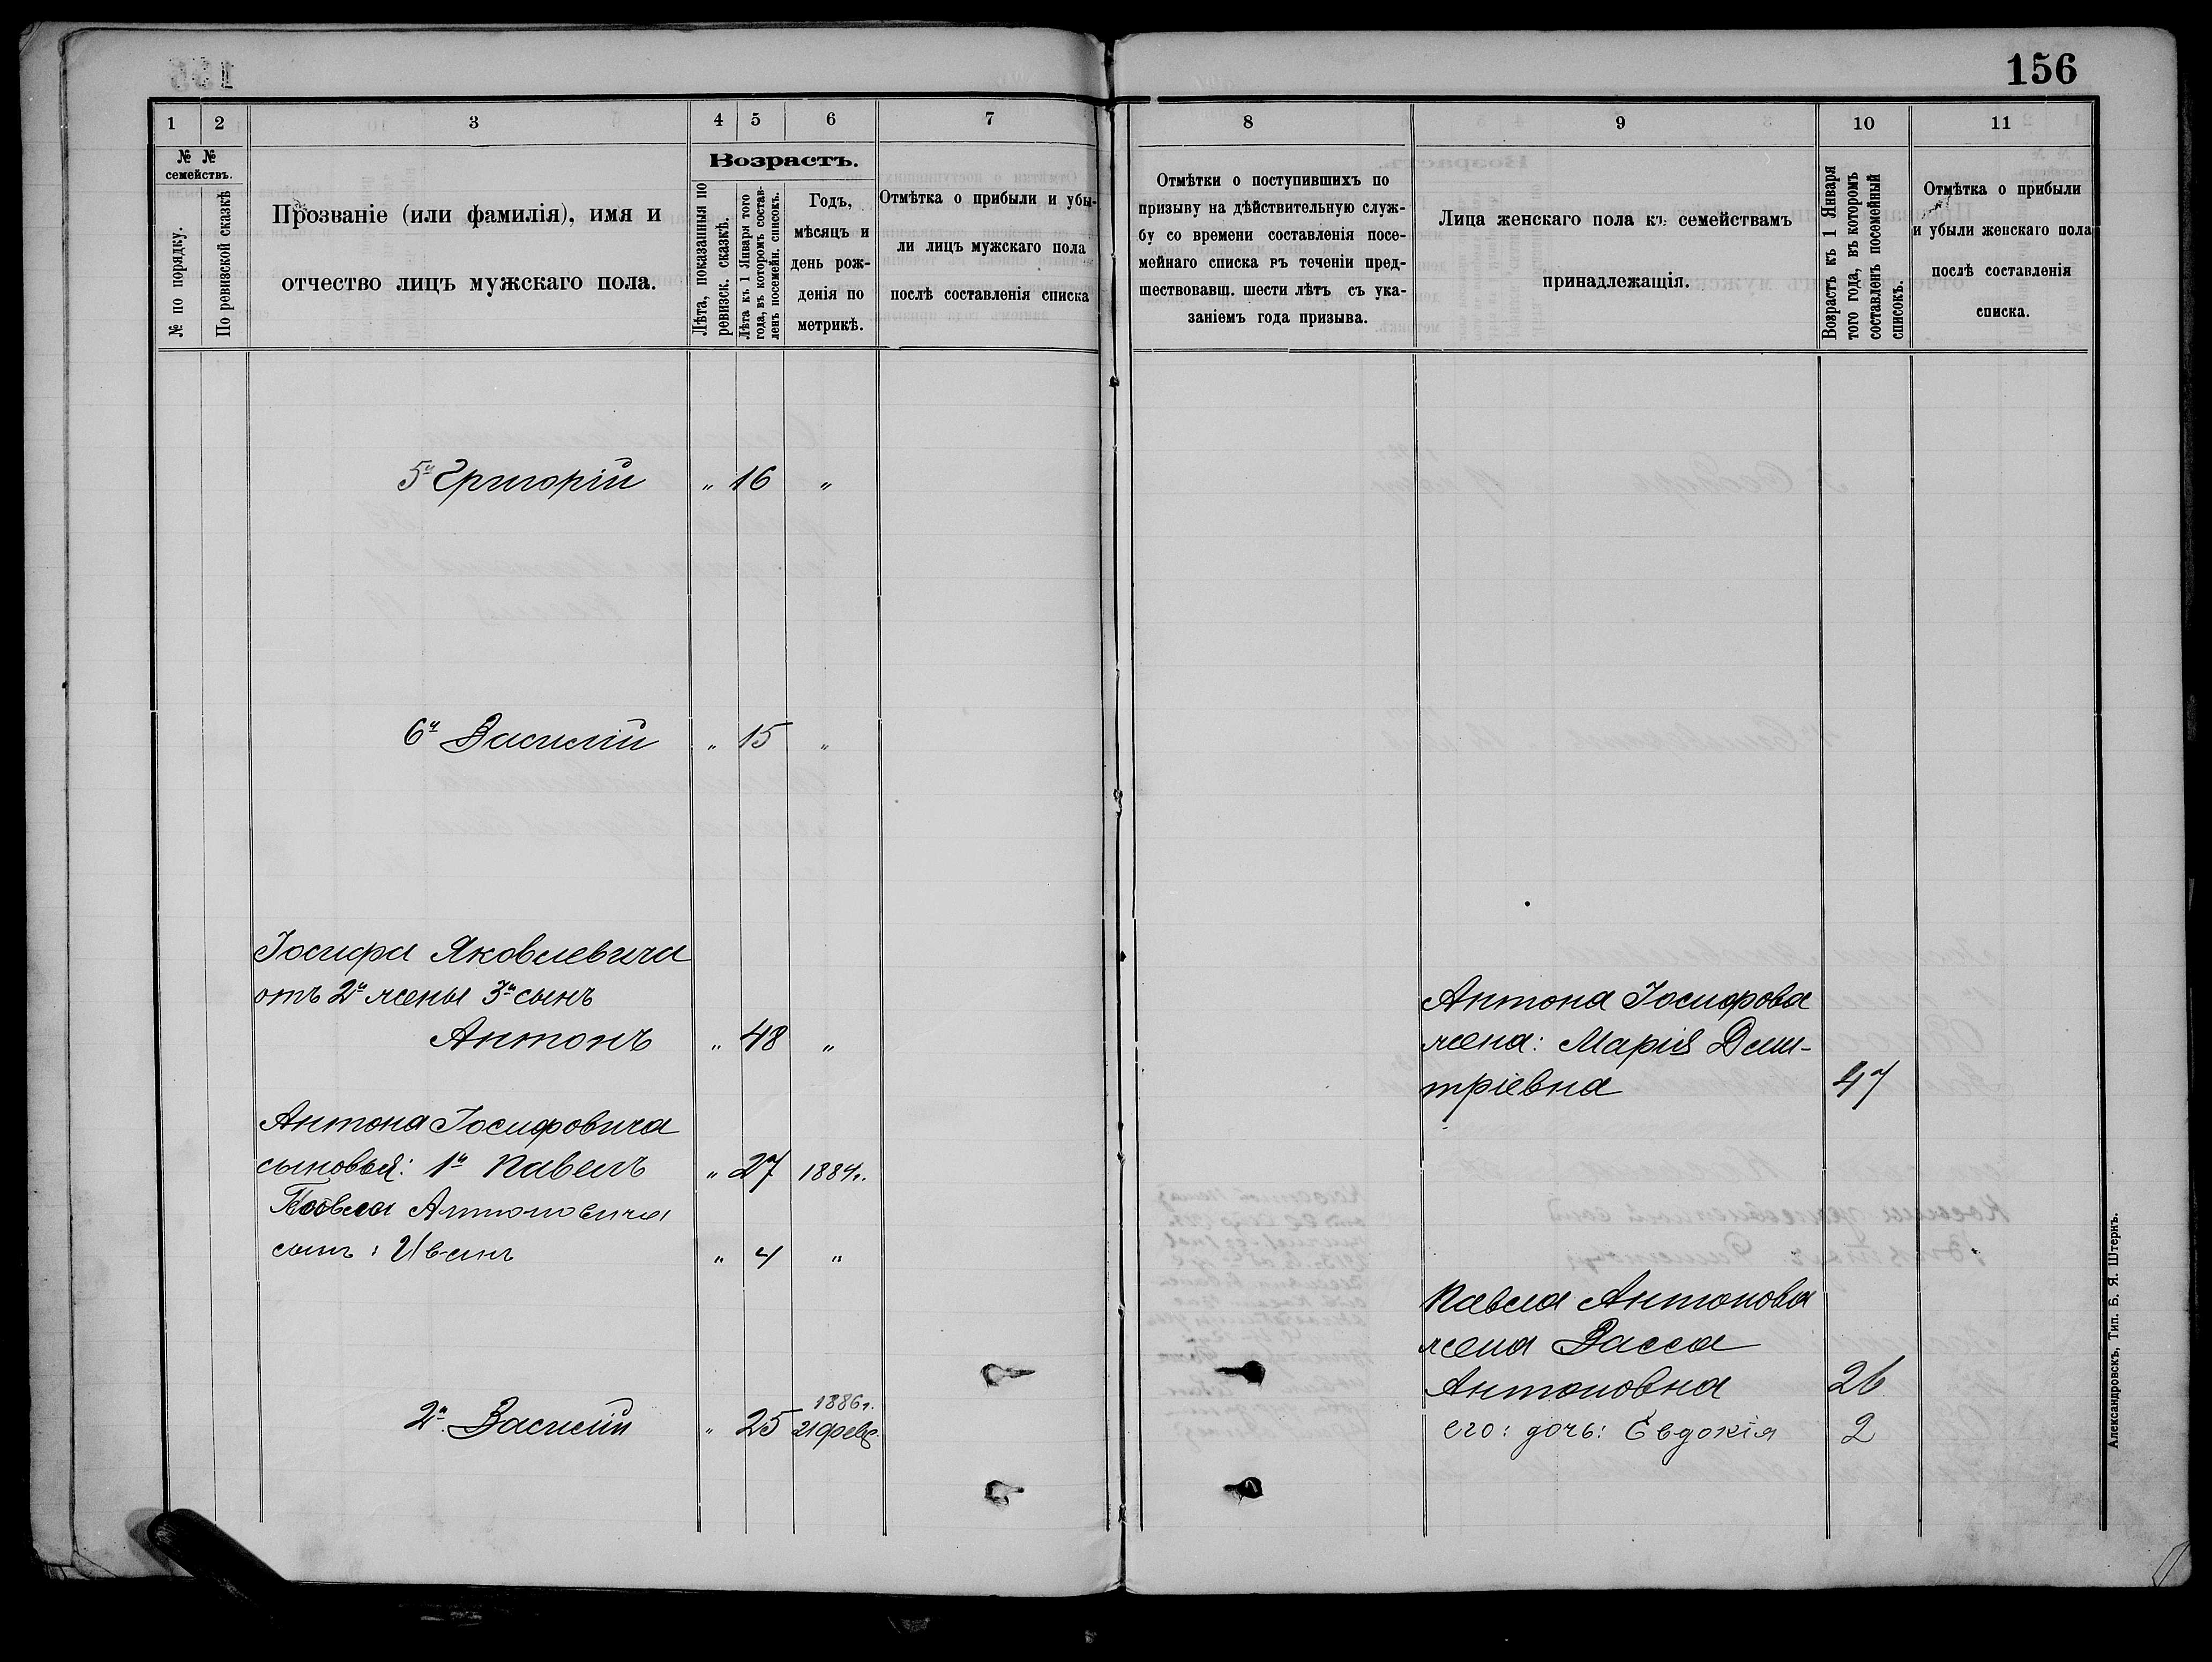 156
1 2 3 4 5 6 7
№ №
семействъ.
№ по порядку.
По ревизской сказкѣ
Прозваніе (или фамилія), имя и
отчество лицъ мужскаго пола.
Возрастъ.
Лѣта, показанныя по
ревизск. сказкѣ.
Лѣта къ 1 Января того
года, въ которомъ состав-
ленъ посемейн. списокъ.
Годъ,
мѣсяцъ и
день рож-
денія по
метрикѣ.
Отмѣтка о прибыли и убы-
ли лицъ мужскаго пола
послѣ составленія списка
5й Григорій " 16 "
6й Василій " 15 "
Іосифа Яковлевича
отъ 2й жены 3й сынъ
Антонъ " 48 "
Антона Іосифовича
сыновья: 1й Павелъ " 27 1884г.
Павла Антоновича
сынъ: Иванъ " 4 "
1886г.
2й Василій " 25 21 февр.
8 9 10 11
Отмѣтки о поступившихъ по
призыву на дѣйствительную служ-
бу со времени составленія посе-
мейнаго списка въ теченіи пред-
шествовавш. шести лѣтъ съ ука-
заніемъ года призыва.
Лица женскаго пола къ семействамъ
принадлежащія.
Возрастъ къ 1 Января
того года, въ которомъ
составленъ посемейный
списокъ.
Отмѣтка о прибыли
и убыли женскаго пола
послѣ составленія
списка.
Антона Іосифова
жена: Марія Дми-
тріевна 47
Павла Антонова
жена Васса
Антоновна 26
его: дочь: Евдокія 2
Александровскъ, Тип. Б. Я. Штернъ.